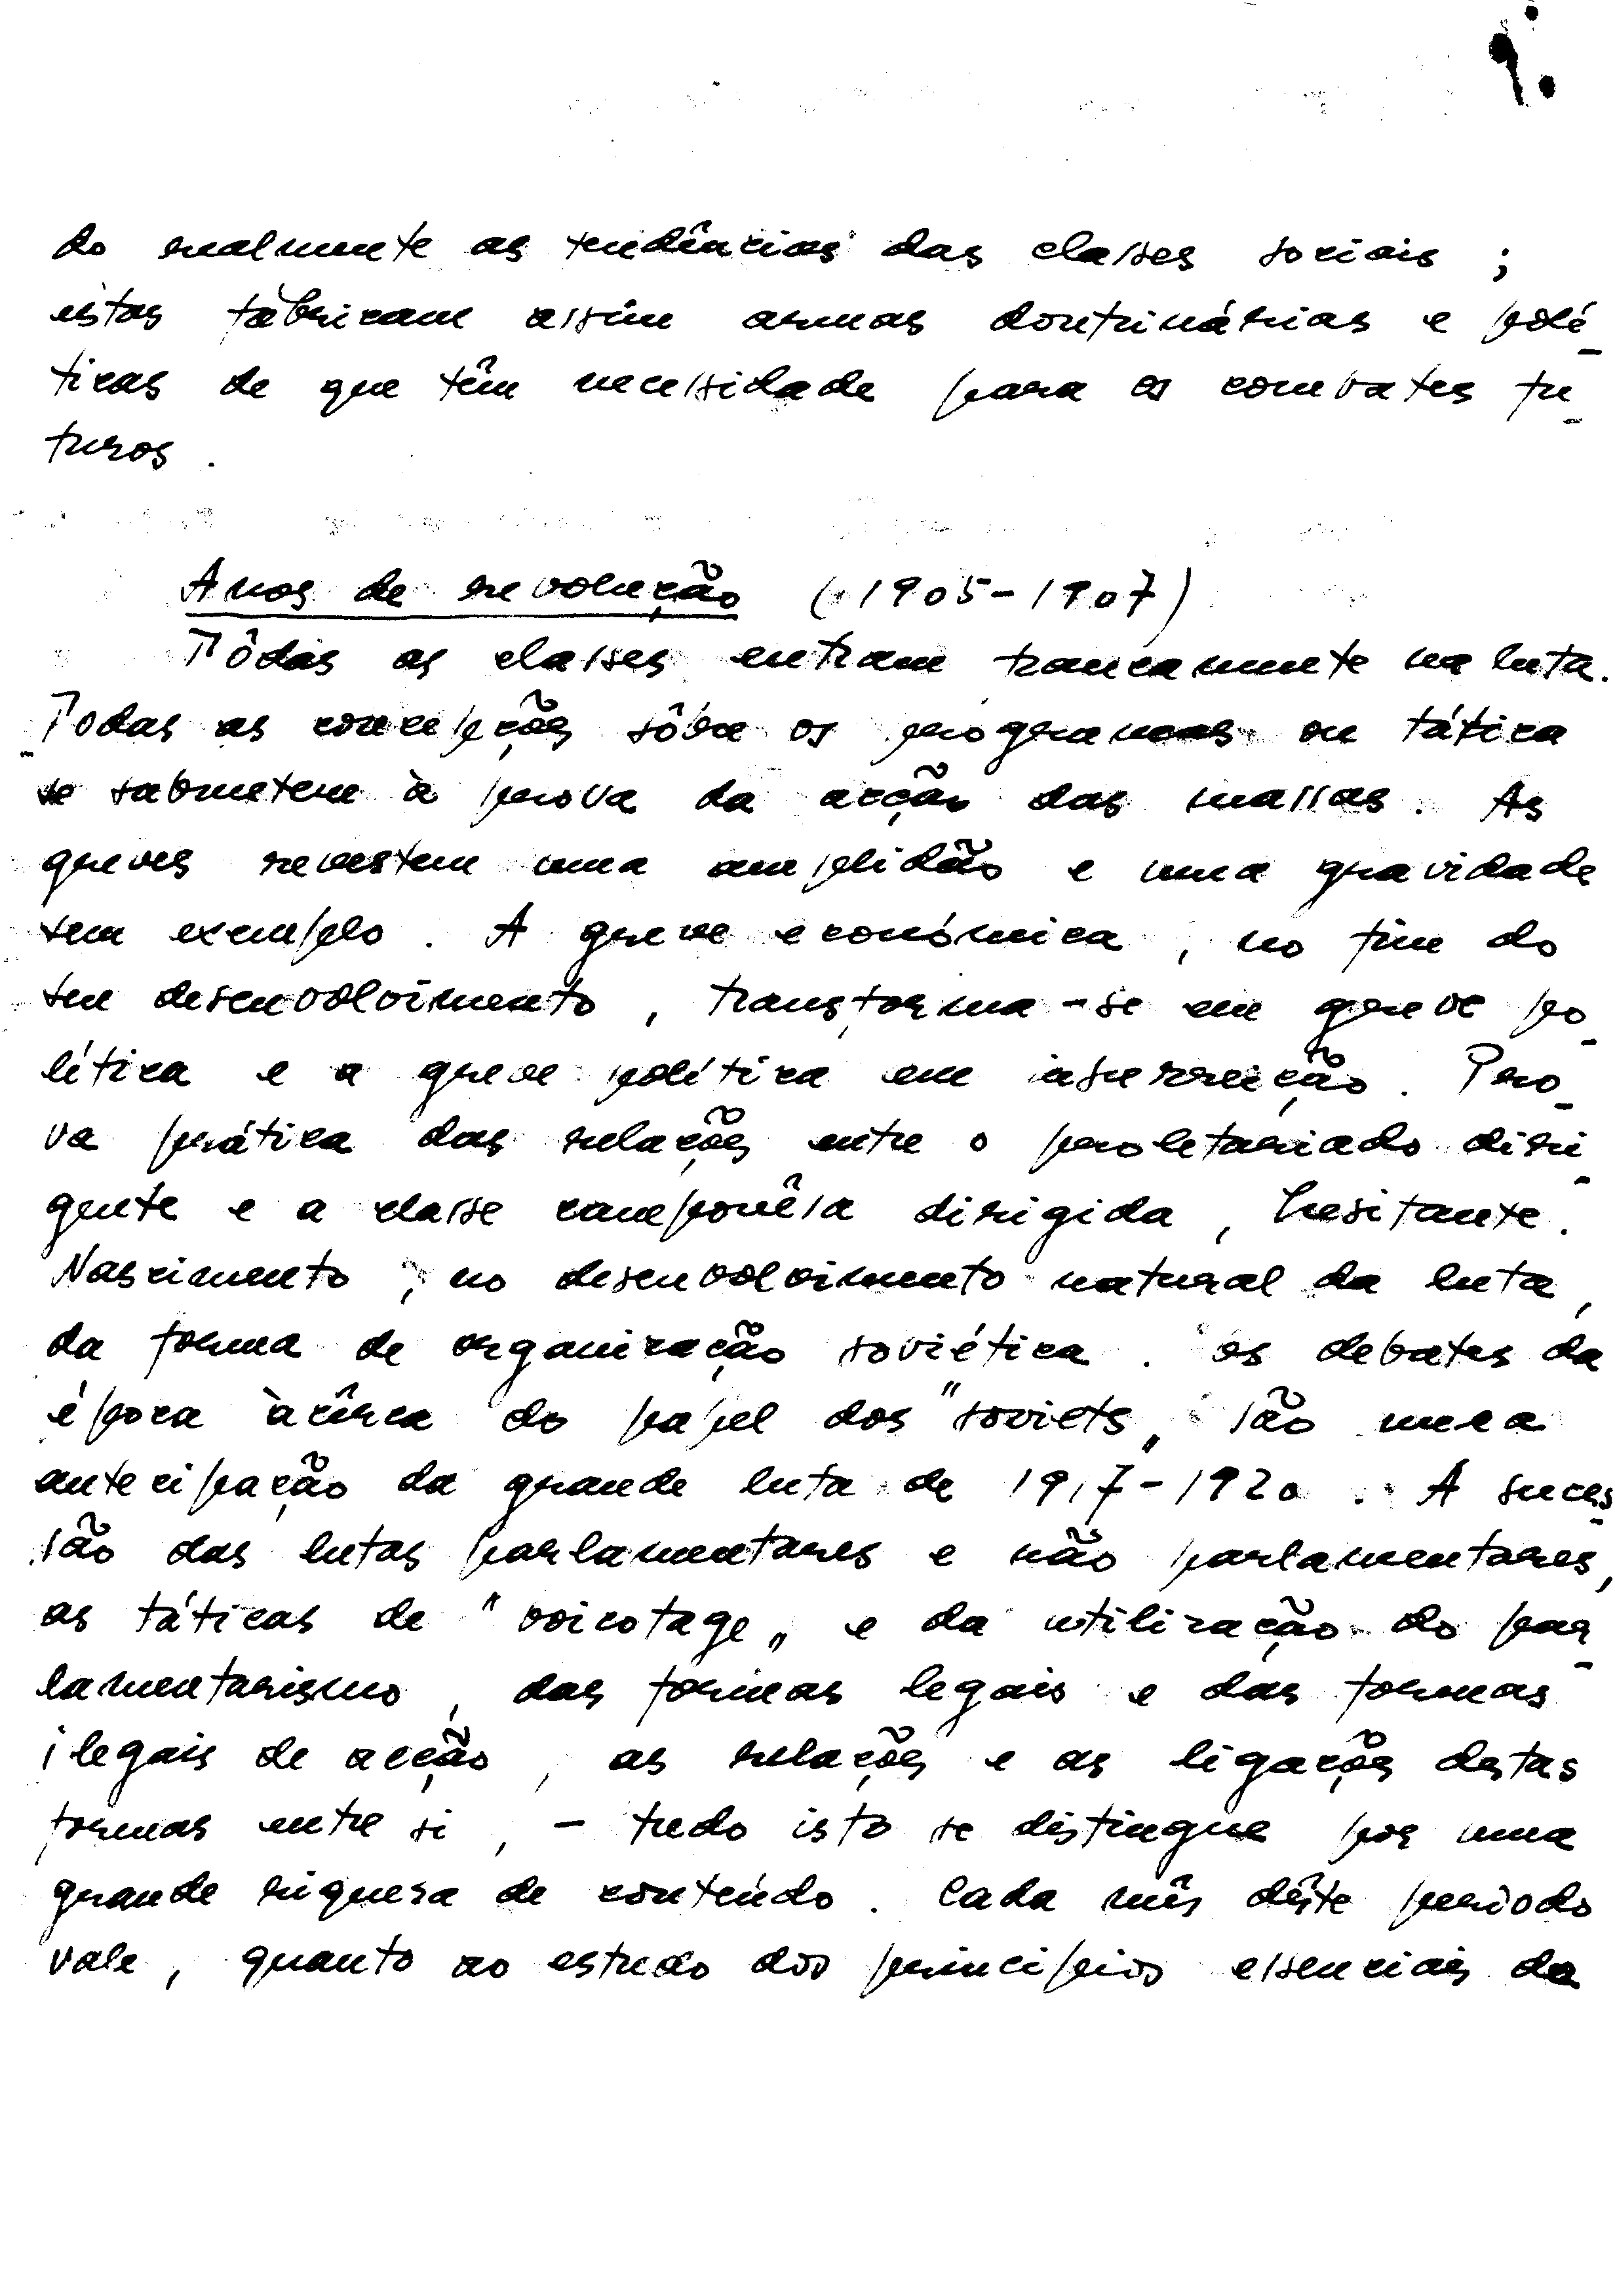 9.
do realmente as tendências das classes sociais ;
estas fabricam assim armas doutrinárias e polí_
ticas de que têm necessidade para os combates fu_
turos .
Anos de revolução (1905-1907)
Tôdas as classes entram francamente na luta.
Todas as concepções sôbre os programas ou tática
se submetem à prova da acção das massas . As
greves revestem uma amplidão e uma gravidade
sem exemplo . A greve económica , no fim do
seu desenvolvimento , transforma-se em greve po_
lítica e a greve política em insurreição . Pro_
va prática das relações entre o proletariado diri_
gente e a classe camponêsa dirigida , hesitante .
Nascimento , no desenvolvimento natural da luta ,
da forma de organização soviética . os debates da
época àcêrca do papel dos "soviets" são uma
antecipação da grande luta de 1917-1920 . A suces_
são das lutas parlamentares e não parlamentares ,
as táticas de "boicotage" e da utilização do par_
lamentarismo , das formas legais e das formas
ilegais de acção , as relações e as ligações destas
formas entre si , - tudo isto se distingue por uma
grande riquesa de conteúdo . Cada mês dêste periodo
vale , quanto ao estudo dos principios essenciais da